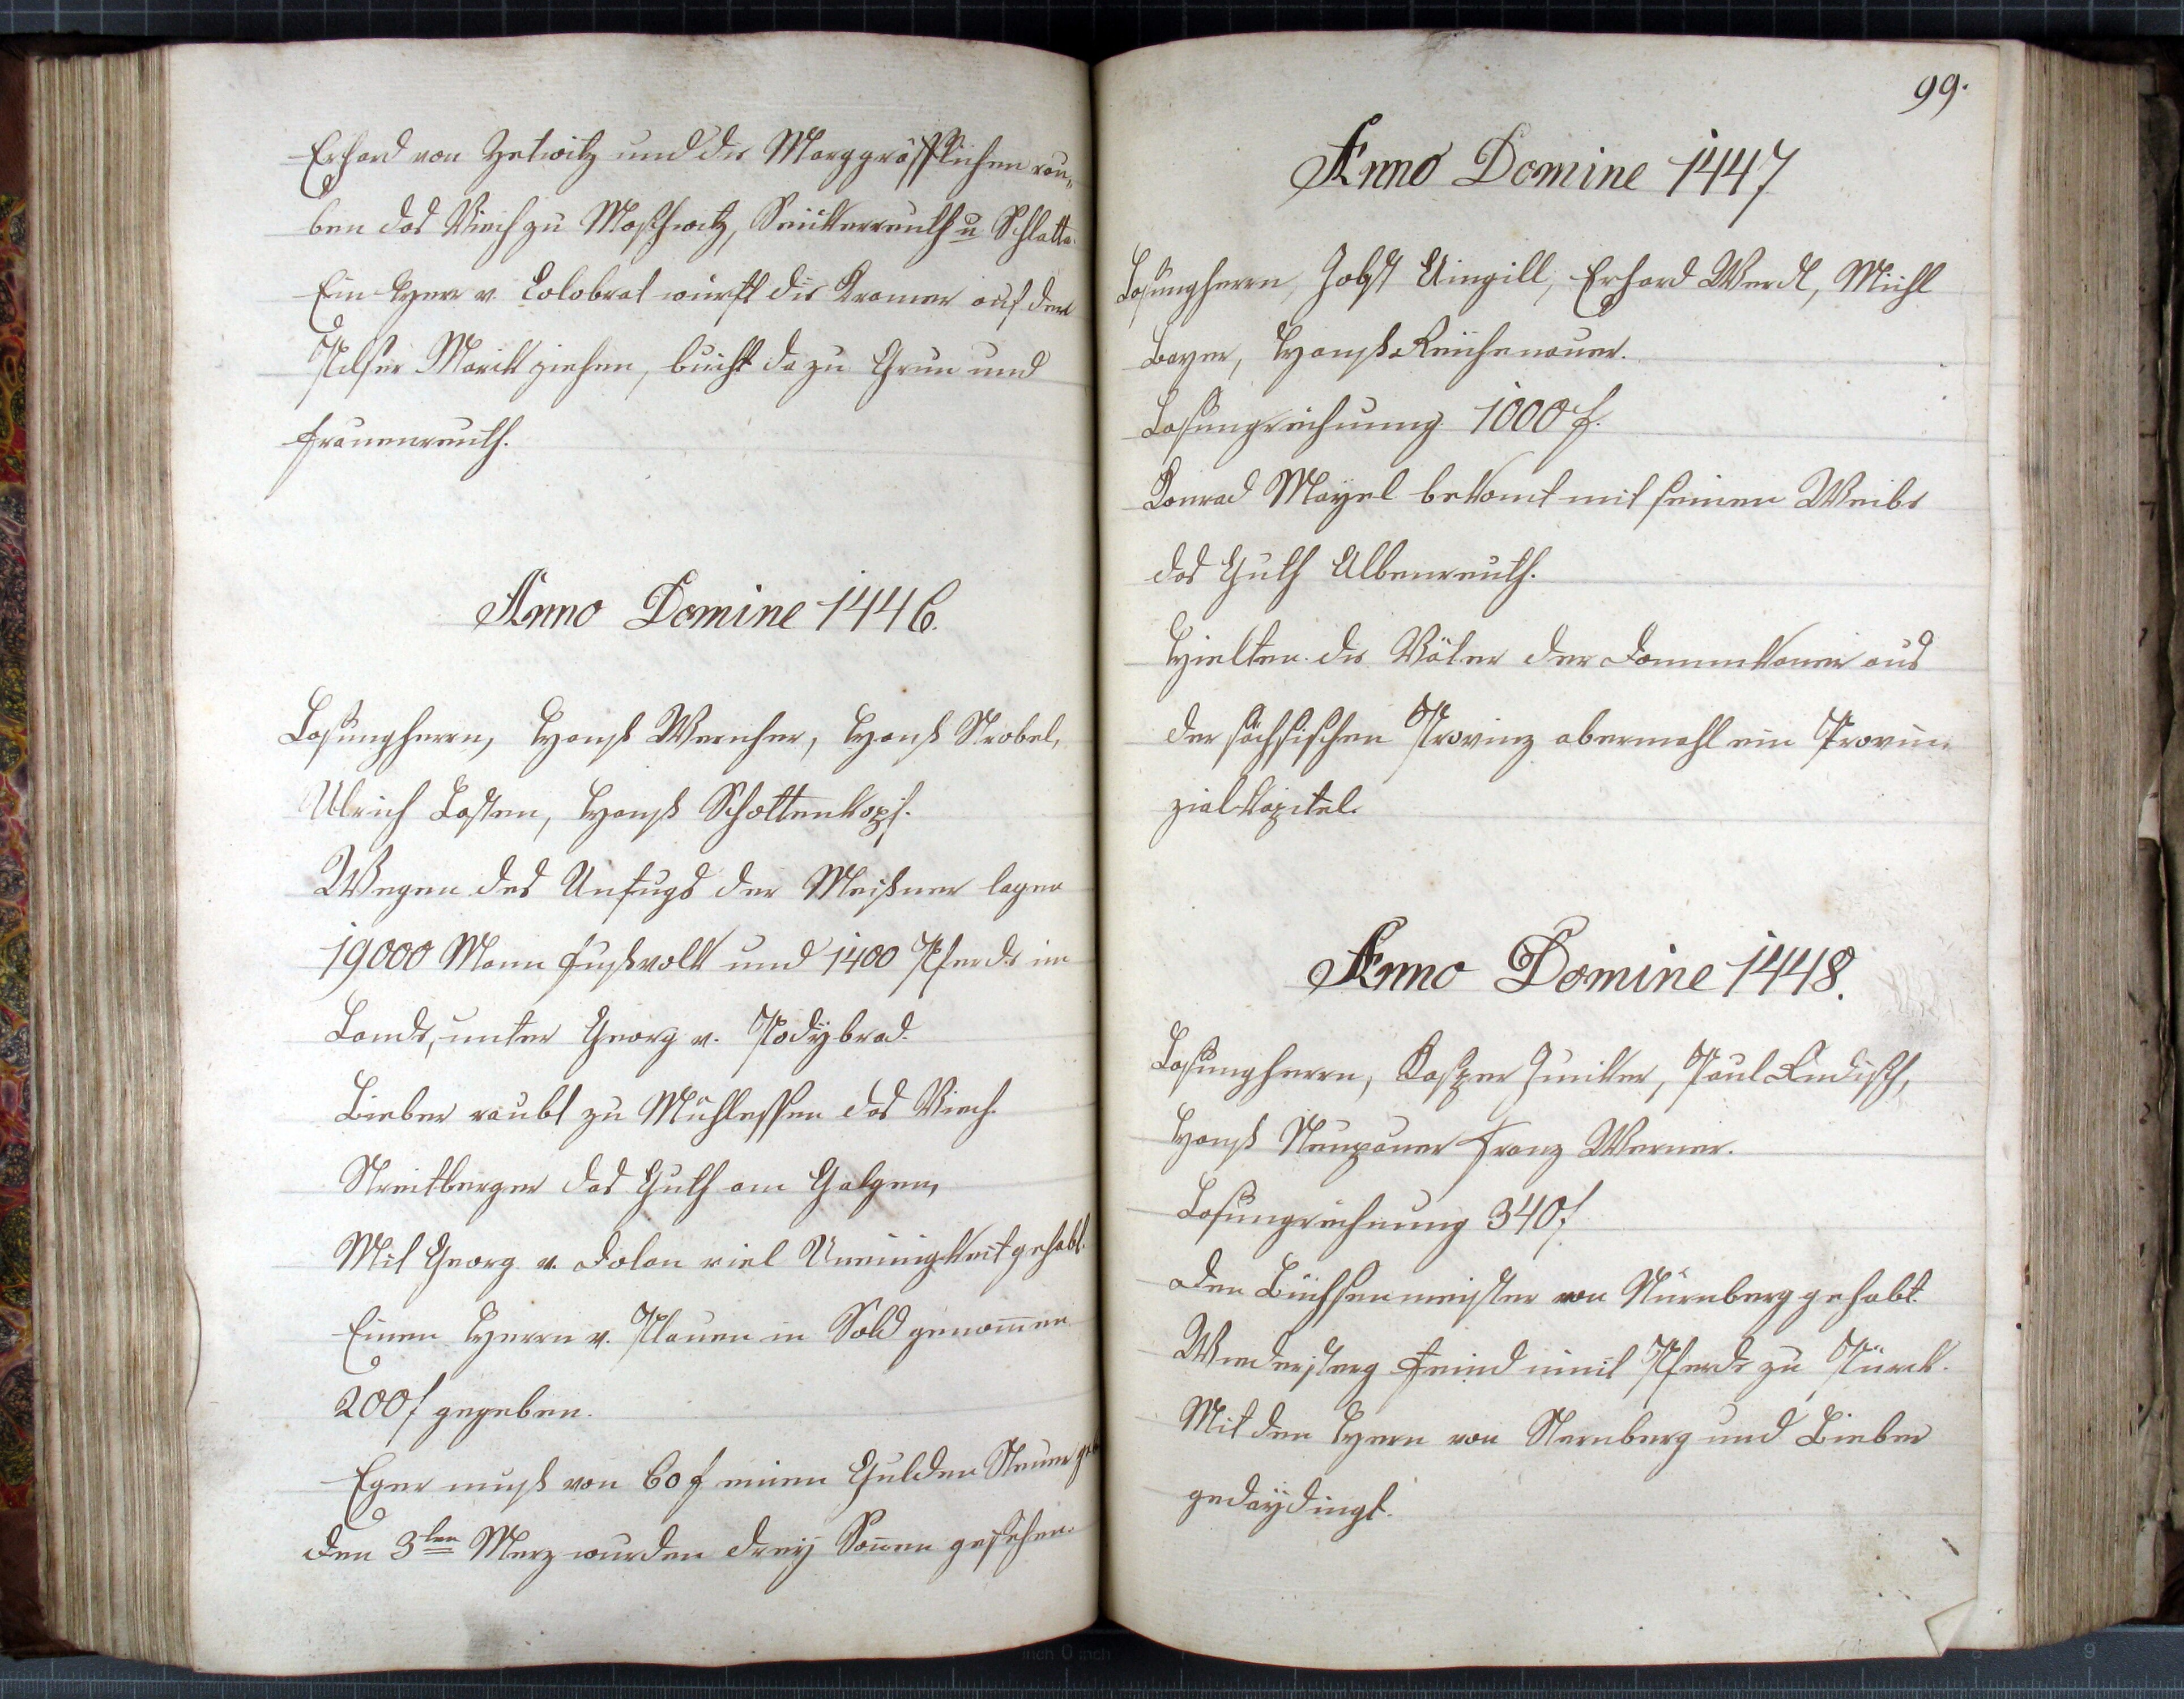 Erhard von Zetwitz und die Marggräfflichen rau„
ben das Viech zu Mostwitz, Seickerreuth u Schlatta.
Ein Herr v. Colobrat wirft die Kramer auf den
Pilsner Markt ziehen, bricht da zu Grun und
Frauenreuth.
Anno Domine 1446.
Losungherrn, Hanß Wernher, Hanß Strobel,
Ulrich Kosten, Hanß Schottenkopf.
Wegen des Unfugs der Meißner lagen
19000 Mann Fußvolk und 1400 Pferde im
Lande, unter Georg v. Podÿbrad.
Bieber raubt zu Mühlessen das Viech.
Streitberger das Guth am Galgen,
Mit Georg v. Dolan viel Uneinigkeit gehabt.
Einen Herrn v. Plauen in Sold genom̄en
200 f gegeben.
Eger muß von 60 f einen Gulden Steuer
Den 3ten Merz wurden dreÿ Son̄en gesehen.
99.
Anno Domine 1447
Losungherrn, Jobst Eingill, Erhard Werdl, Michl
Bayer, Hanß Reichenauer.
Losungrechnung 1000 f.
Konrad Mayel bekomt mit seinen Weibe
das Guth Albenreuth.
Hielten die Väter der Dominikaner aus
der sächsischen Provinz abermahl ein Provin„
zial Kapitel.
Anno Domine 1448.
Losungherrn, Kasper Juncker, Paul Rudisch,
Hanß Neupauer Franz Werner.
Losungrechnung 340 f
Den Büchsenmeister von Nürnberg gehabt.
Feind nimt Pferde zu Pürk.
Mit den Hern von Sternberg und Bieber
gedaÿdingt.